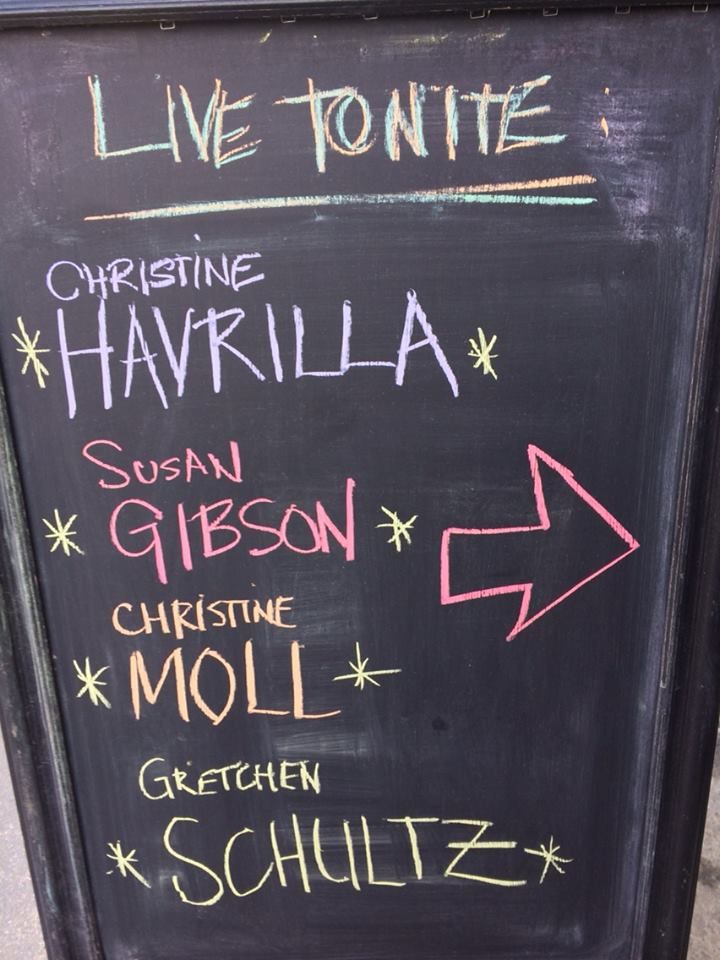 LIVE TONITE
CHRISTINE
* HAVRILLA *
SUSAN
* GIBSON *
CHRISTINE
* MOLL *
GRETCHEN
* SCHULTZ *